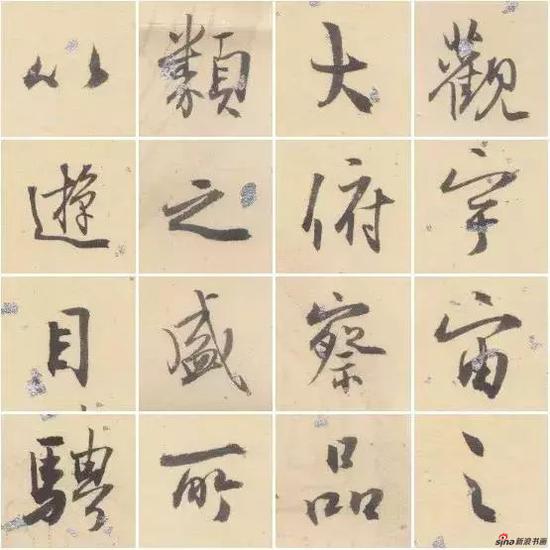 觀宇宙之
大俯察品
類之盛所
以遊目騁
sina新浪书画